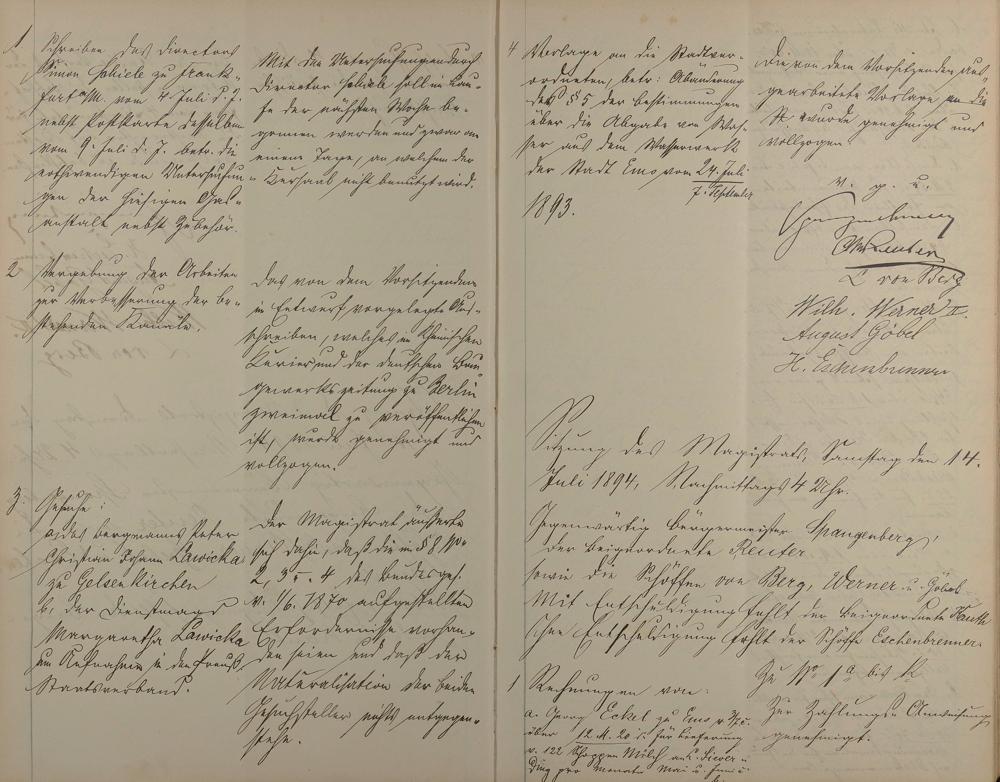 1
Schreiben des Directors
Simon Schiele zu Frank-
furt a/M. vom 4. Juli d. J.
nebst Postkarte desselben
vom 9. Juli d. J. betr. die
nothwendigen Untersuchun-
gen der hiesigen Gas-
anstalt nebst Zubehör.
Mit den Untersuchungen durch
Director Schiele soll im Lau-
fe der nächsten Woche be-
gonnen werden und zwar an
einem Tage, an welchem der
Kursaal nicht benutzt wird.
2
Vergebung der Arbeiten
zur Verbesserung der be-
stehenden Kanäle.
Das von dem Vorsitzenden
im Entwurf vorgelegte Aus-
schreiben, welches im Rheinischen
Kurier und der deutschen Bau-
gewerkszeitung zu Berlin
zweimal zu veröffentlichen
ist, wurde genehmigt und
vollzogen.
3.
Gesuche:
a, des Bergmanns Peter
Christian Johann Lawicka
zu Gelsenkirchen
b, der Dienstmagd
Margaretha Lawicka
um Aufnahme in den Preuß.
Staatsverband.
Der Magistrat äußerte
sich dahin, daß die in § 8 No
2, 3 u. 4 des Bundesges.
v. 1/6. 1870 aufgestellten
Erfordernisse vorhan-
den seien und daß der
Naturalisation der beiden
Gesuchsteller nichts entgegen-
stehe.
4
Vorlage an die Stadtver-
ordneten, betr: Abänderung
des § 5 der Bestimmungen
über die Abgabe von Was-
ser aus dem Wasserwerk
der Stadt Ems vom 24. Juli
7. September
1893.
Die von dem Vorsitzenden aus-
gearbeitete Vorlage an die
wurde genehmigt und
vollzogen
v. g. u.
Spangenberg
Reuter
L von Berg
Wilh. Werner II.
August Göbel
H. Eschenbrenner
Sitzung des Magistrats, Samstag den 14.
Juli 1894, Nachmittags 4 Uhr.
Gegenwärtig Bürgermeister Spangenberg,
der Beigeordnete Reuter
sowie die Schöffen von Berg, Werner u. Göbel
Mit Entschuldigung fehlt der Beigeordnete
Ohne Entschuldigung fehlt der Schöffe Eschenbrenner.
1
Rechnungen von:
a. Georg Eckel zu Ems v.
über 12 M. 20 für Lieferung
v. 122 Schoppen Milch an
pro Monate Mai u. Juni
Zu No 1 a bis k
Zur Zahlungs-Anweisung
genehmigt.